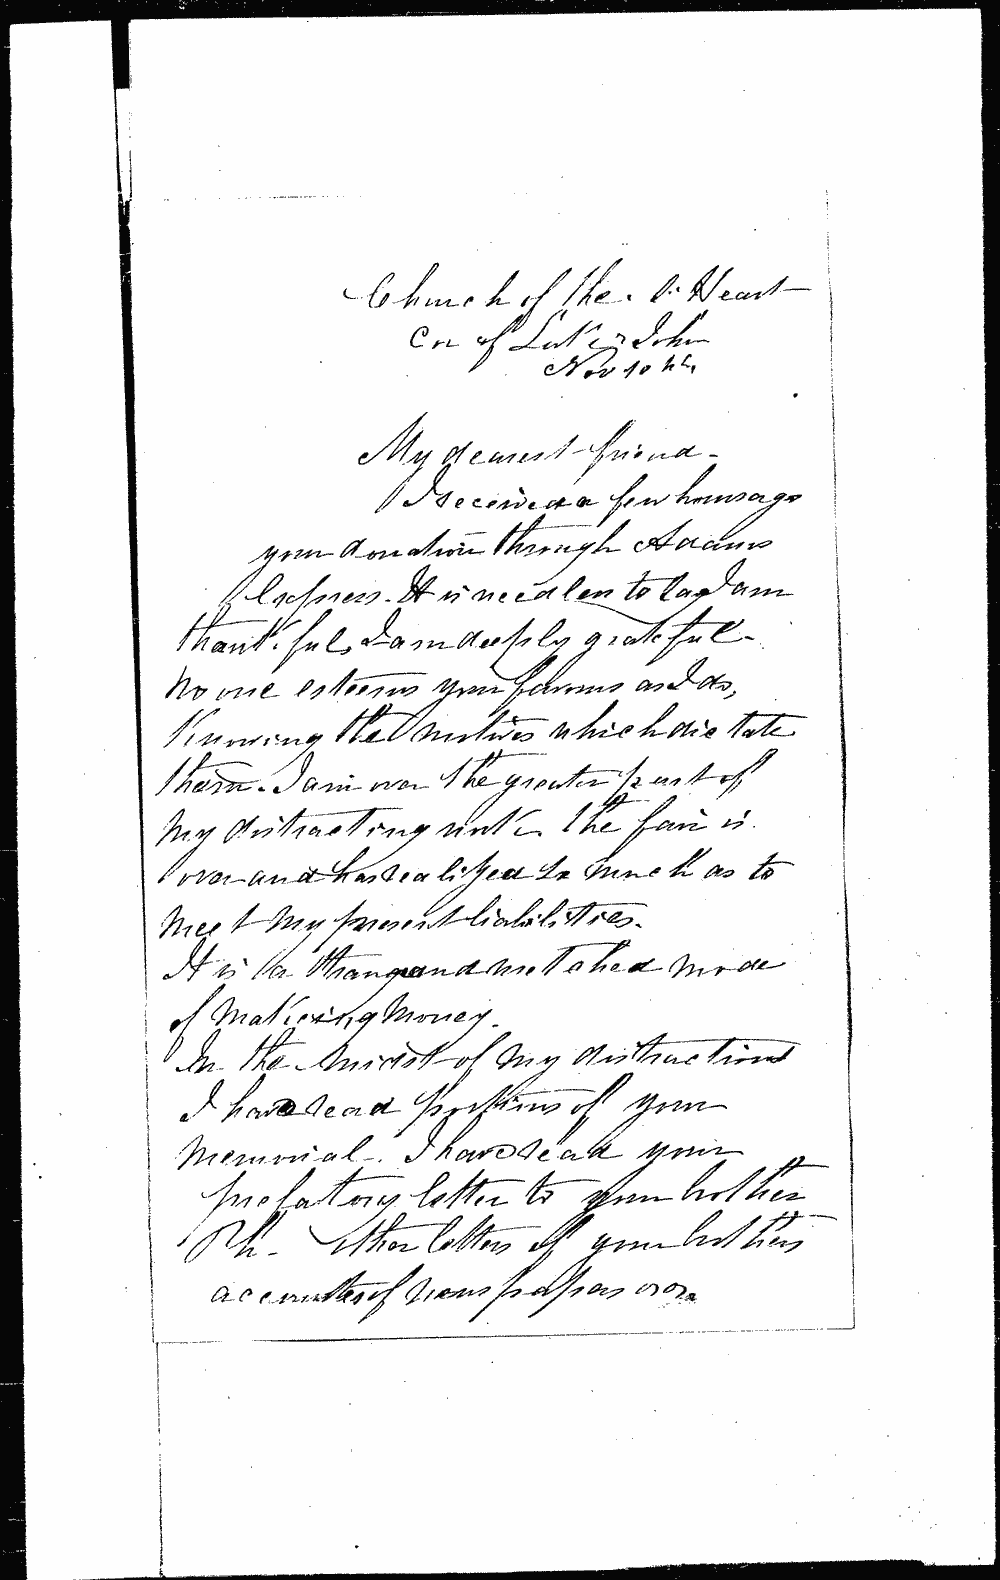 Church of the S. Heart
Cor of Lake & John
Nov 10th
My dearest friend -
I received a few hours ago
your donation through Adams
Express. It is needless to say I am
thankful, I am deeply grateful -
No one esteems your favours as I do,
Knowing the motives which dictate
them. I am over the greater part of
my distracting work. The fair is
over and has realized so much as to
meet my present liabilities.
It is a strange and wretched mode
of makeing money.
In the midst of my distractions
I have read portions of your
memorial. I have read your
prefatory letter to your brother
Ph. - other letters of your brothers
accounts of newspapers